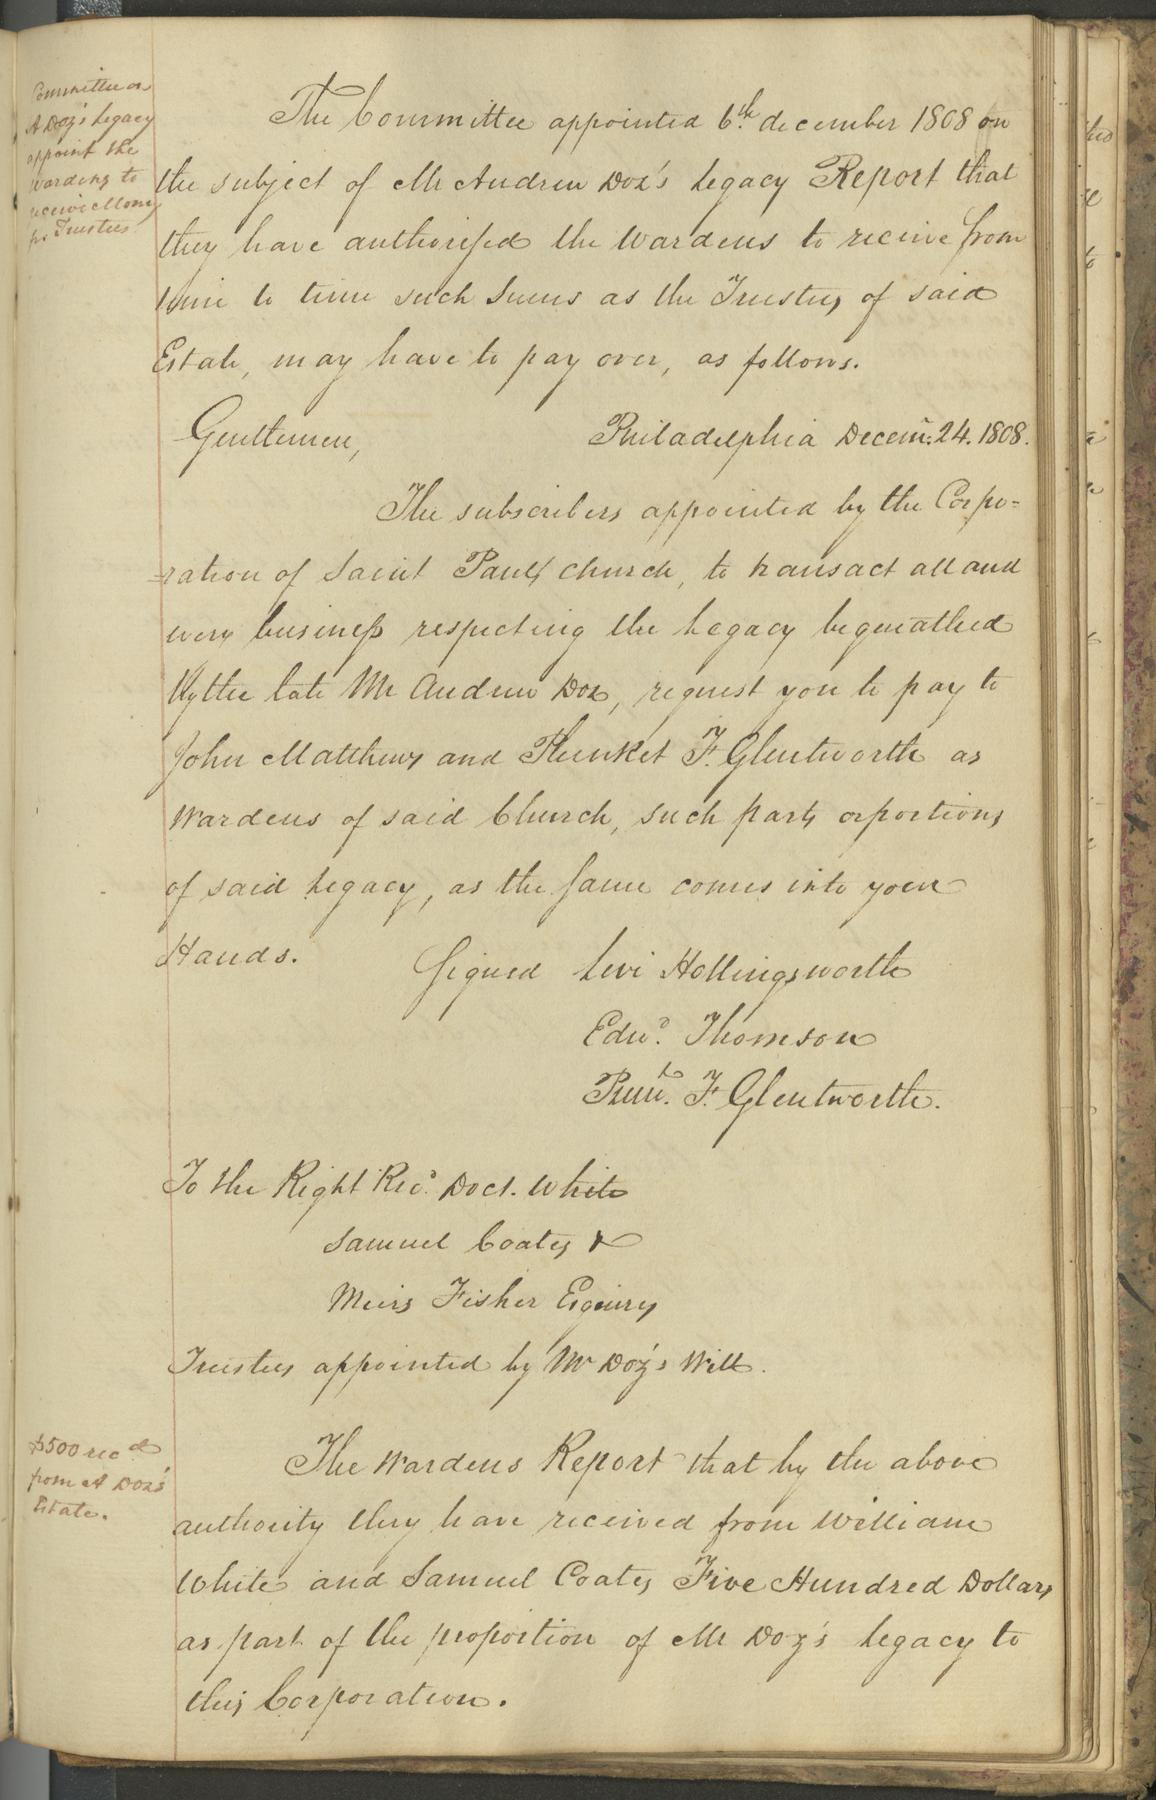 Committee on
A Doz's Legacy
appoint the
Wardens to
receive Money
fr. Trustees
The Committee appointed 6th. december 1808 on
the subject of Mr Andrew Doz's Legacy Report that
they have authorised the Wardens to receive from
time to time such Sums as the Trustees of said
Estate, may have to pay over, as follows.
Gentlemen, Philadelphia Decem:. 24. 1808.
The subscribers appointed by the Corpo=
=ration of Saint Pauls Church, to transact all and
every business respecting the Legacy bequeathed
by the late Mr Andrew Doz, request you to pay to
John Matthews and Plunket F. Glentworth as
Wardens of said Church, such parts or portions
of said Legacy, as the same comes into your
Hands.
Signed Levi Hollingsworth
Edwd. Thomson
Plunt. F. Glentworth.
To the Right Revd. Doct. White
Samuel Coates &
Miers Fisher Esquires
Trustees appointed by Mr Doz's Will.
$500 recd
from A Doz's
Estate.
The Wardens Report that by the above
authority they have received from William
White and Samuel Coates Five Hundred Dollars
as part of the proportion of Mr Doz's legacy to
this Corporation.